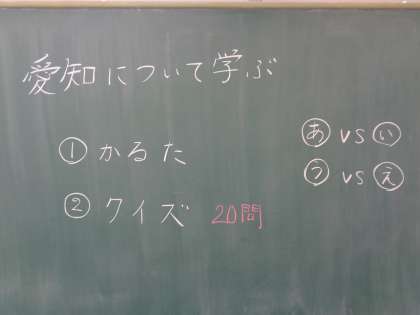 愛知について学ぶ
① かるた
② クイズ 20問
あ vs い
う vs え